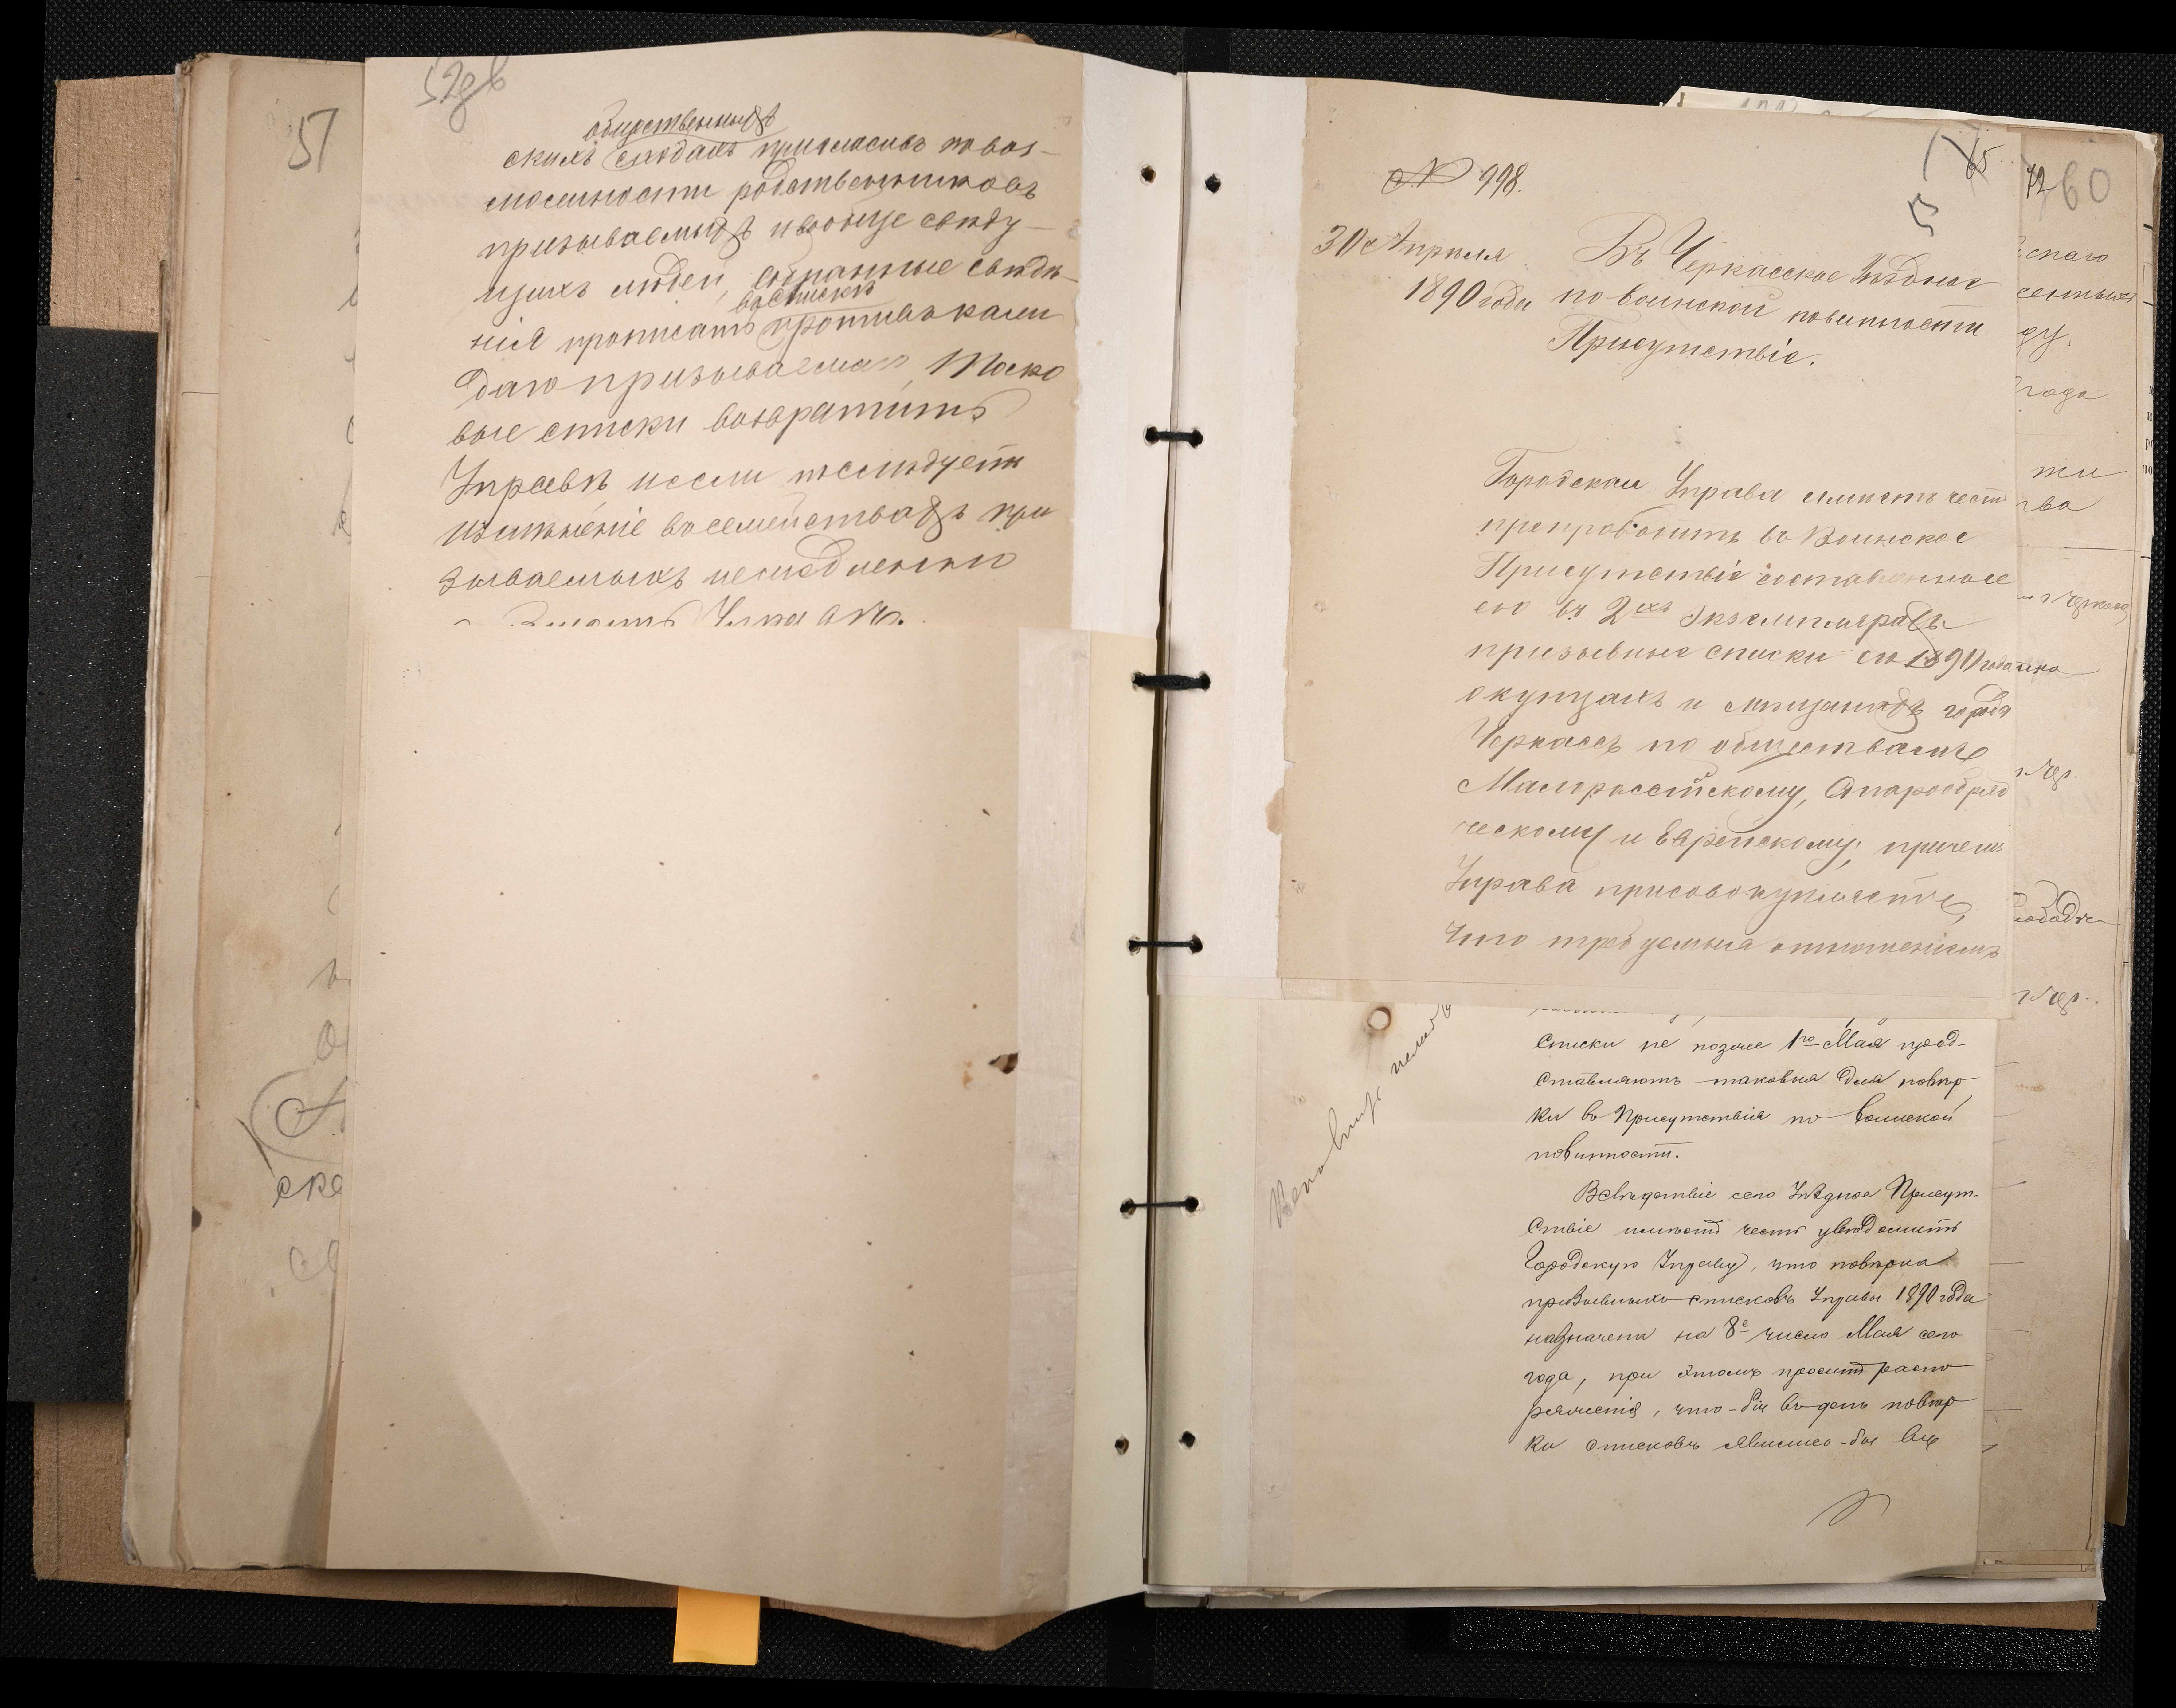 51
52об
общественныхъ
скихъ сходахъ пригласивъ по воз-
можности родственниковъ
призываемыхъ и вообще свѣду-
щихъ людей, собранные свѣдѣ-
въ спискѣ
нія прописать противъ каж
даго призываемаго, тако
вые списки возвратить
Управѣ и если послѣдуетъ
измѣненіе въ семействахъ при
зываемыхъ немедленно
№ 998.
65
72 60
30 Апрѣля
1890 года
Въ Черкасское Уѣздное
по воинской повинности
Присутствіе.
Городская Управа имѣетъ честь
препроводить въ Воинское
Присутствіе составленные
ею въ 2хъ экземплярахъ
призывные списки сего 1890 года
о купцахъ и мѣщанахъ города
Черкассъ по обществамъ
Малороссійскому, Старообряд
ческому и Еврейскому; причемъ
Управа присовокупляетъ,
что требуемыя отношеніемъ
списки не позже 1го Мая пред-
ставляютъ таковыя для повѣр
ки въ Присутствія по воинской
повинности.
Вслѣдствіе сего Уѣздное Присут-
ствіе имѣетъ честь увѣдомить
Городскую Управу, что повѣрка
призывныхъ списковъ Управы 1890 года
назначена на 8е число Мая сего
года, при этомъ проситъ распо
ряженія, что-бы въ день повѣр
ки списковъ явились-бы